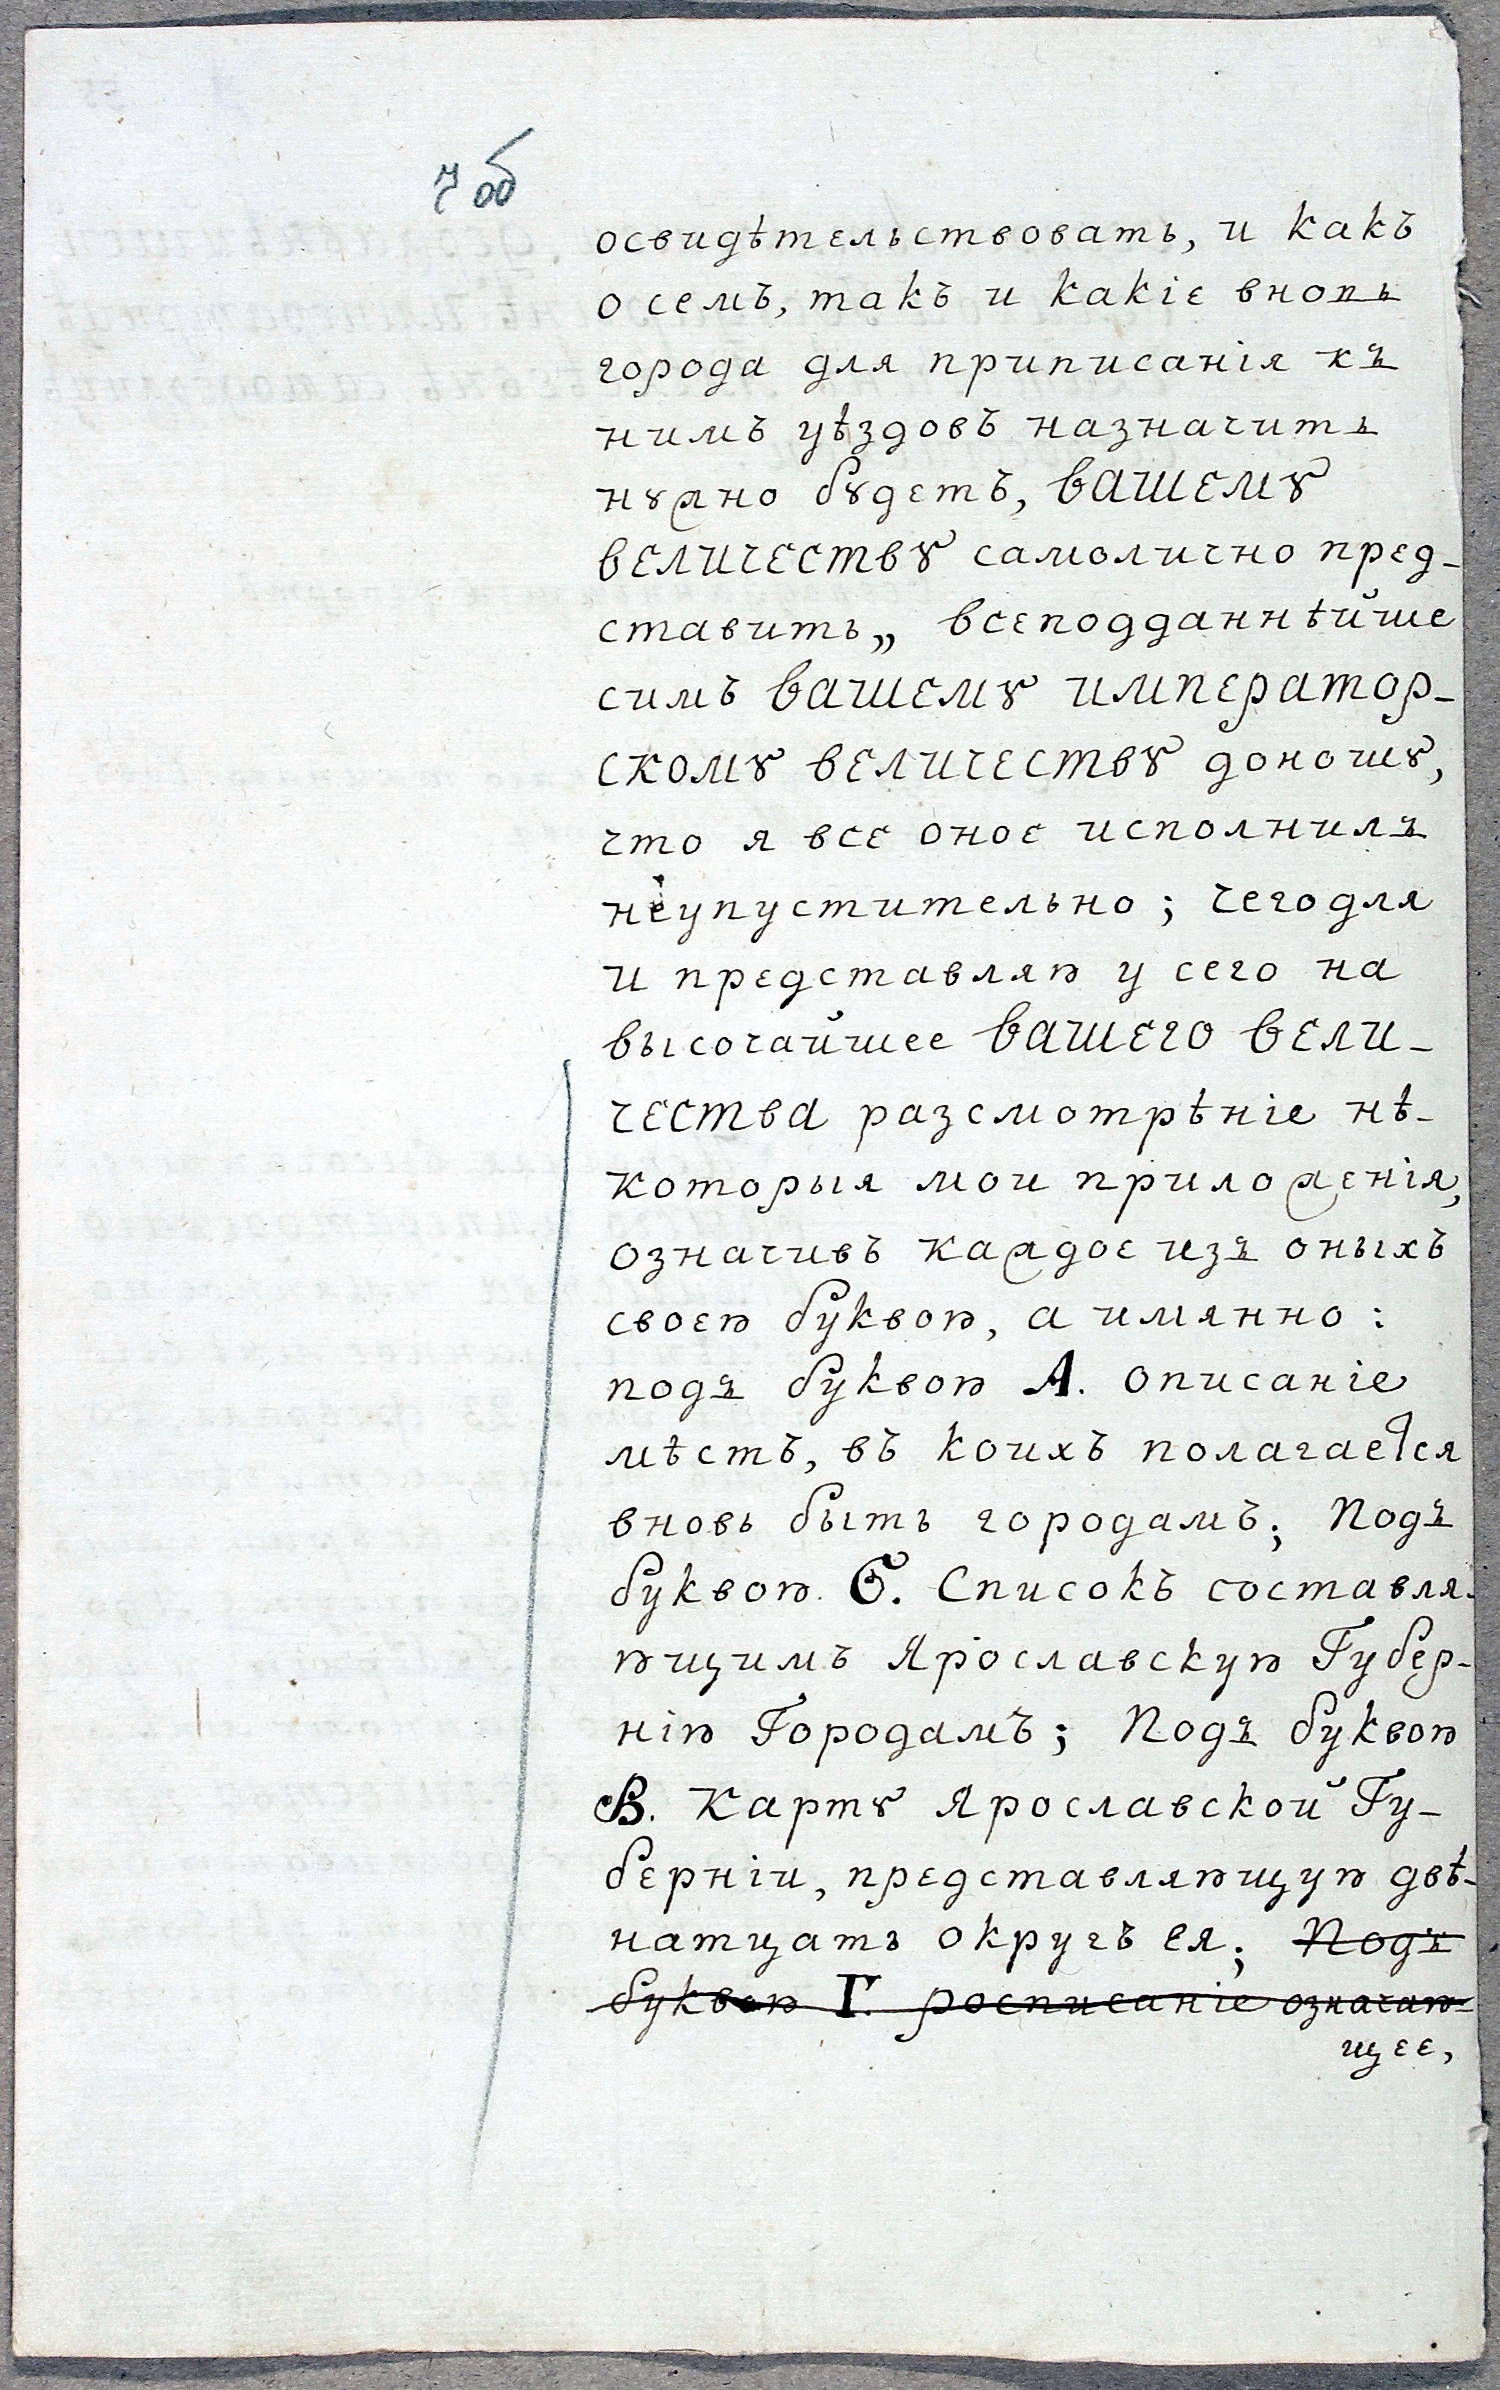 7 об
освидѣтельствовать, и какъ
о семъ, такъ и какіе вновь
города для приписанія къ
нимъ уѣздовъ назначить
нꙋжно бꙋдетъ, ВАШЕМꙊ
ВЕЛИЧЕСТВꙊ самолично пред-
ставить„ всеподданнѣйше
симъ ВАШЕМꙊ ИМПЕРАТОР-
СКОМꙊ ВЕЛИЧЕСТВꙊ доношꙋ,
что я все оное исполнилъ
неупустительно; чего для
и представляю у сего на
высочайшее ВАШЕГО ВЕЛИ-
ЧЕСТВА разсмотрѣніе нѣ-
которыя мои приложенія,
означивъ каждое изъ оныхъ
своею буквою, а имянно:
подъ буквою А. описаніе
мѣстъ, въ коихъ полагается
вновь быть городамъ; Подъ
буквою. Б. Списокъ составля-
ющимъ Ярославскую Губер-
нію Городамъ; Подъ буквою
В. Картꙋ Ярославской Гу-
берніи, представляющую двѣ-
натцать округъ ея; Подъ
буквою Г. росписаніе означаю-
щее,